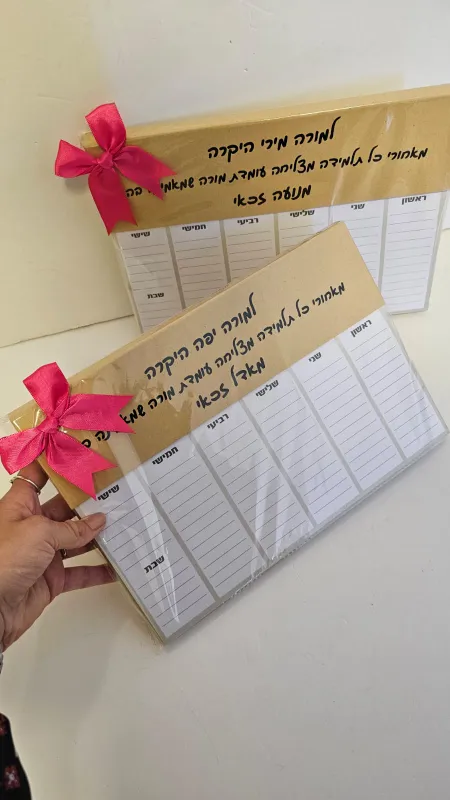 למורה מירי היקרה
מאחורי כל תלמידה מצליחה עומדת מורה שמאמינה בה
מנועה זכאי
ראשון שני שלישי רביעי חמישי שישי
שבת
למורה יפה היקרה
מאחורי כל תלמידה מצליחה עומדת מורה שמאמינה
מאדל זכאי
ראשון שני שלישי רביעי חמישי שישי
שבת